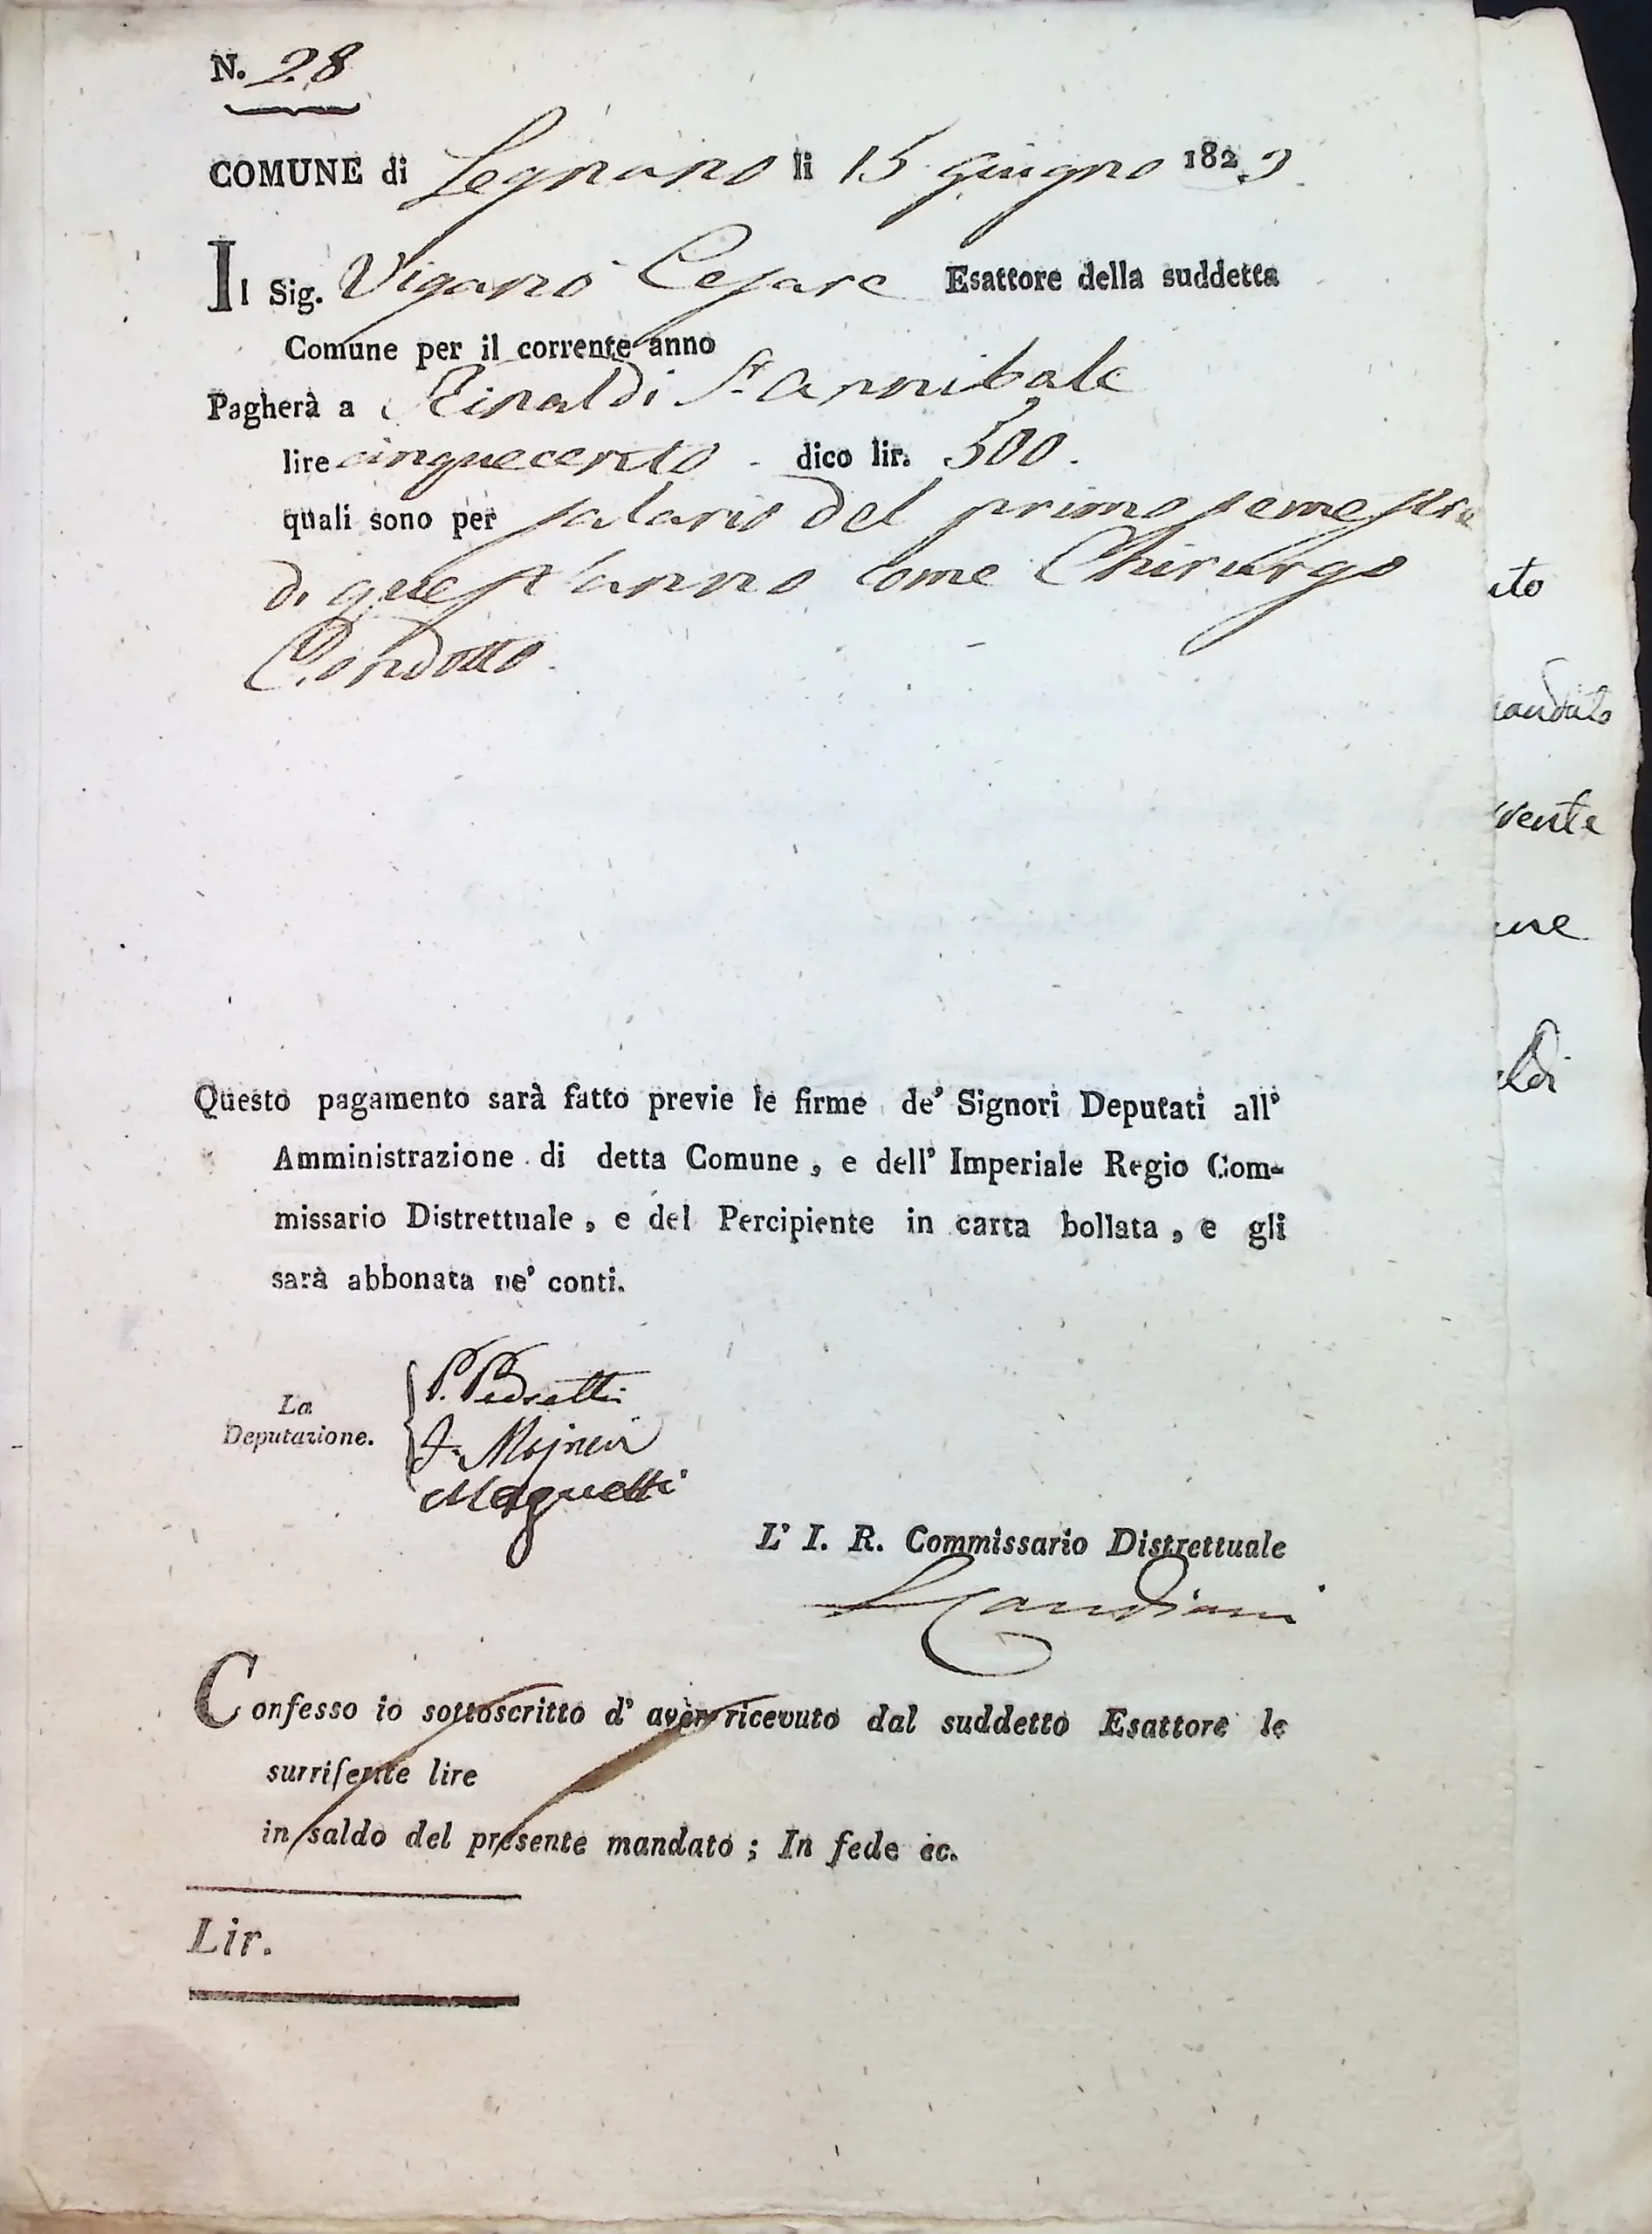 N. 28
COMUNE di Legnano li 15 giugno 1823
Il Sig. Viganò Cesare Esattore della suddetta
Comune per il corrente anno
Pagherà a Rinaldi Sr. Annibale
lire cinquecento - dico lir. 500.
quali sono per salario del primo semestre
di quest'anno come Chirurgo
Condotto.
Questo pagamento sarà fatto previe le firme de' Signori Deputati all'
Amministrazione di detta Comune, e dell' Imperiale Regio Com-
missario Distrettuale, e del Percipiente in carta bollata, e gli
sarà abbonata ne' conti.
La
Deputazione.
P. Pedretti
Maguetti
L' I. R. Commissario Distrettuale
Candiani
Confesso io sottoscritto d' aver ricevuto dal suddetto Esattore le
surriferite lire
in saldo del presente mandato; In fede ec.
Lir.
ato
andato
rente
une
ldi